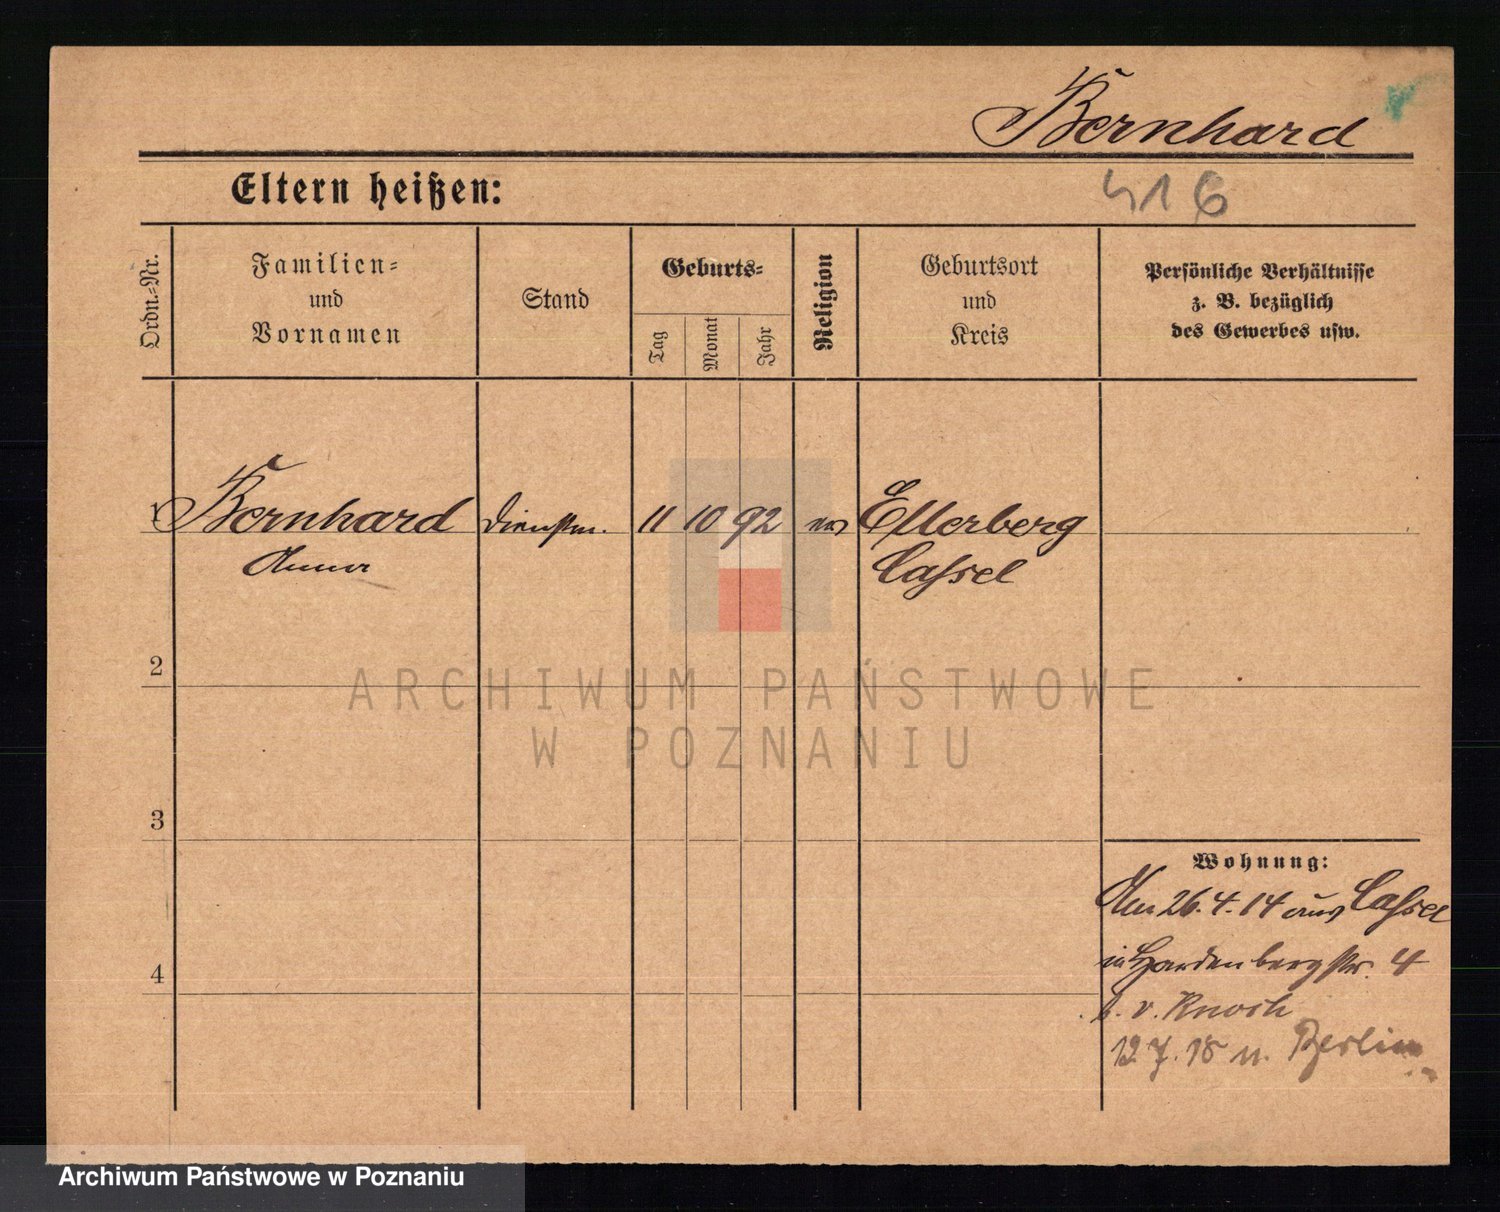 Bernhard
Eltern heißen:
416
Ordn.-Nr.
Familien-
und
Vornamen
Stand
Geburts-
Tag
Monat
Jahr
Religion
Geburtsort
und
Kreis
Persönliche Verhältnisse
z. B. bezüglich
des Gewerbes usw.
1 Bernhard Dienstm. 11 10 92 ev Ellerberg
Anna Cassel
2
ARCHIWUM PAŃSTWOWE
W POZNANIU
3
Wohnung:
Am 26.4.14 aus Cassel
in Hardenbergstr. 4
b. v. Knosch
4
12.7.18 n. Berlin
Archiwum Państwowe w Poznaniu